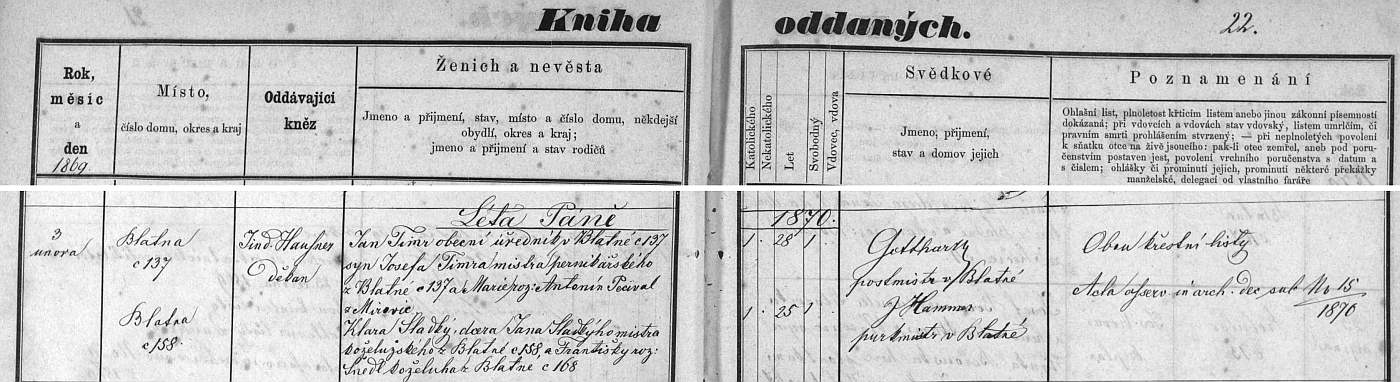 Kniha oddaných.
22.
Rok,
měsíc
a
den
1869.
Místo,
číslo domu, okres a kraj
Oddávající
kněz
Ženich a nevěsta
Jmeno a přijmení, stav, místo a číslo domu, někdejší
obydlí, okres a kraj;
jmeno a přijmení a stav rodičů
Katolického
Nekatolického
Let
Svobodný
Vdovec, vdova
Svědkové
Jmeno, přijmení,
stav a domov jejich
Poznamenání
Ohlašní list, plnoletost křticím listem anebo jinou zákonní písemností
dokázaná; při vdovcích a vdovách stav vdovský, listem umrlčím, či
pravním smrti prohlášením stvrzený; — při neplnoletých povolení
k sňatku otce na živě jsoucího; pak-li otec zemřel, aneb pod poru-
čenstvím postaven jest, povolení vrchního poručenstva s datum a
s číslem; ohlášky či prominutí jejich, prominutí některé překážky
manželské, delegací od vlastního faráře
Léta Páně
1870.
3
února
Blatna
č 137
Jind. Haufner
Děkan
Jan Timr obecní úředník v Blatné č 137
syn Josefa Timra mistra pernikářského
z Blatné č 137 a Marie roz: Antonin Pečival
z Mirovic
1. 28 1
Gotthard
postmistr v Blatné
Obou křestní listy
Acta asserv in arch. dec sub No 15
1870
Blatna
č 158.
Klara Sladký, dcera Jana Sladkýho mistra
koželužského z Blatné č 158, a Františky roz:
Šnedl koželuha z Blatné č 168
1. 25 1
J Hammer
purkmistr v Blatné